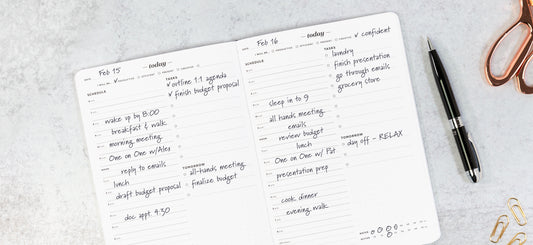 DATE Feb 15
today
I WILL BE: PRODUCTIVE EFFICIENT PRESENT CREATIVE
SCHEDULE
wake up by 8:00
breakfast & walk
morning meeting
One on One w/Alex
reply to emails
lunch
draft budget proposal
doc appt. 4:30
TASKS
outline 1:1 agenda
finish budget proposal
TOMORROW
all-hands meeting
finalize budget
DATE Feb 16
today
I WILL BE: PRODUCTIVE EFFICIENT PRESENT CREATIVE confident
SCHEDULE
sleep in to 9
all hands meeting
emails
review budget
lunch
One on One w/ Pat
presentation prep
cook dinner
evening walk
TASKS
laundry
finish presentation
go through emails
grocery store
TOMORROW
day off - RELAX
WATER